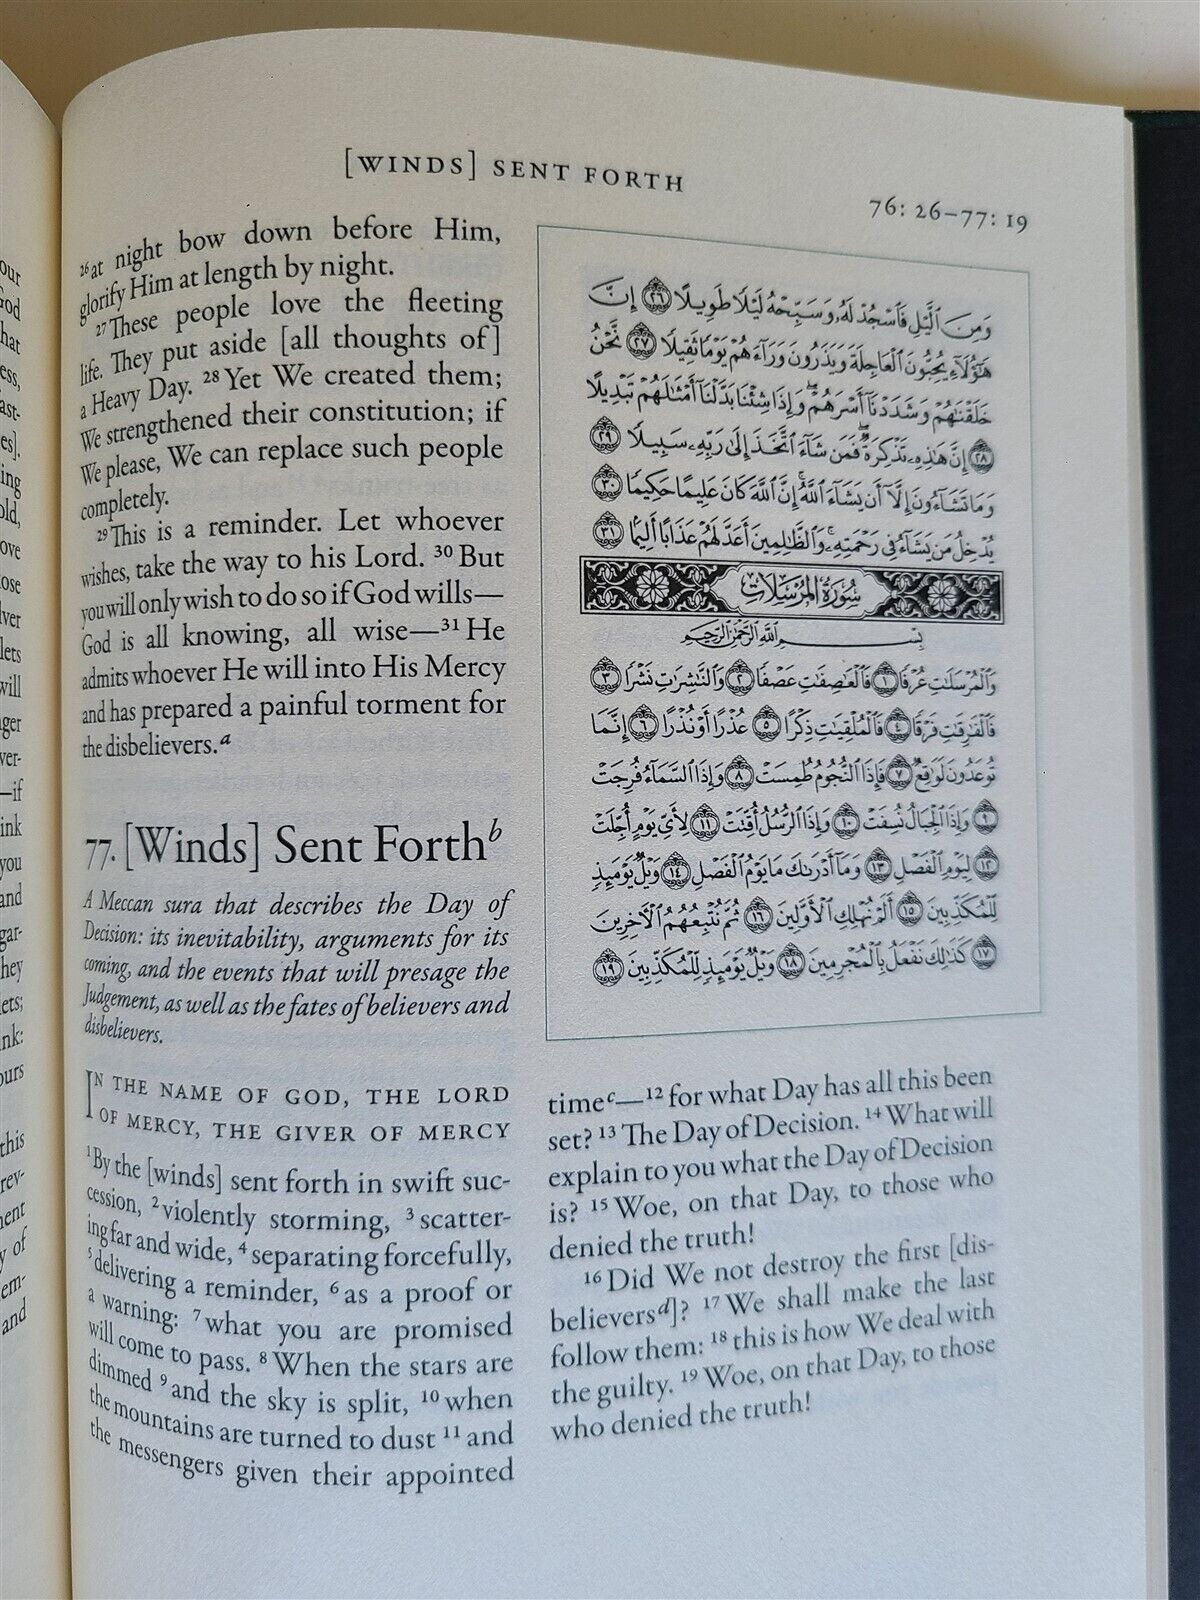 [WINDS] SENT FORTH
76: 26–77: 19
²⁶at night bow down before Him,
glorify Him at length by night.
²⁷These people love the fleeting
life. They put aside [all thoughts of]
a Heavy Day. ²⁸Yet We created them;
We strengthened their constitution; if
We please, We can replace such people
completely.
²⁹This is a reminder. Let whoever
wishes, take the way to his Lord. ³⁰But
you will only wish to do so if God wills—
God is all knowing, all wise—³¹He
admits whoever He will into His Mercy
and has prepared a painful torment for
the disbelievers.ᵃ
77. [Winds] Sent Forthᵇ
A Meccan sura that describes the Day of
Decision: its inevitability, arguments for its
coming, and the events that will presage the
Judgement, as well as the fates of believers and
disbelievers.
IN THE NAME OF GOD, THE LORD
OF MERCY, THE GIVER OF MERCY
¹By the [winds] sent forth in swift suc-
cession, ²violently storming, ³scatter-
ing far and wide, ⁴separating forcefully,
⁵delivering a reminder, ⁶as a proof or
a warning: ⁷what you are promised
will come to pass. ⁸When the stars are
dimmed ⁹and the sky is split, ¹⁰when
the mountains are turned to dust ¹¹and
the messengers given their appointed
وَمِنَ ٱلَّيْلِ فَٱسْجُدْ لَهُۥ وَسَبِّحْهُ لَيْلًا طَوِيلًا ٢٦ إِنَّ
هَٰٓؤُلَآءِ يُحِبُّونَ ٱلْعَاجِلَةَ وَيَذَرُونَ وَرَآءَهُمْ يَوْمًا ثَقِيلًا ٢٧ نَّحْنُ
خَلَقْنَٰهُمْ وَشَدَدْنَآ أَسْرَهُمْ ۖ وَإِذَا شِئْنَا بَدَّلْنَآ أَمْثَٰلَهُمْ تَبْدِيلًا
٢٨ إِنَّ هَٰذِهِۦ تَذْكِرَةٌ ۖ فَمَن شَآءَ ٱتَّخَذَ إِلَىٰ رَبِّهِۦ سَبِيلًا ٢٩
وَمَا تَشَآءُونَ إِلَّآ أَن يَشَآءَ ٱللَّهُ ۚ إِنَّ ٱللَّهَ كَانَ عَلِيمًا حَكِيمًا ٣٠
يُدْخِلُ مَن يَشَآءُ فِى رَحْمَتِهِۦ ۚ وَٱلظَّٰلِمِينَ أَعَدَّ لَهُمْ عَذَابًا أَلِيمًۢا ٣١
سُورَةُ الْمُرْسَلَاتِ
بِسْمِ ٱللَّهِ ٱلرَّحْمَٰنِ ٱلرَّحِيمِ
وَٱلْمُرْسَلَٰتِ عُرْفًا ١ فَٱلْعَٰصِفَٰتِ عَصْفًا ٢ وَٱلنَّٰشِرَٰتِ نَشْرًا ٣
فَٱلْفَٰرِقَٰتِ فَرْقًا ٤ فَٱلْمُلْقِيَٰتِ ذِكْرًا ٥ عُذْرًا أَوْ نُذْرًا ٦ إِنَّمَا
تُوعَدُونَ لَوَٰقِعٌ ٧ فَإِذَا ٱلنُّجُومُ طُمِسَتْ ٨ وَإِذَا ٱلسَّمَآءُ فُرِجَتْ
٩ وَإِذَا ٱلْجِبَالُ نُسِفَتْ ١٠ وَإِذَا ٱلرُّسُلُ أُقِّتَتْ ١١ لِأَىِّ يَوْمٍ أُجِّلَتْ
١٢ لِيَوْمِ ٱلْفَصْلِ ١٣ وَمَآ أَدْرَىٰكَ مَا يَوْمُ ٱلْفَصْلِ ١٤ وَيْلٌ يَوْمَئِذٍ
لِّلْمُكَذِّبِينَ ١٥ أَلَمْ نُهْلِكِ ٱلْأَوَّلِينَ ١٦ ثُمَّ نُتْبِعُهُمُ ٱلْءَاخِرِينَ
١٧ كَذَٰلِكَ نَفْعَلُ بِٱلْمُجْرِمِينَ ١٨ وَيْلٌ يَوْمَئِذٍ لِّلْمُكَذِّبِينَ ١٩
timeᶜ—¹²for what Day has all this been
set? ¹³The Day of Decision. ¹⁴What will
explain to you what the Day of Decision
is? ¹⁵Woe, on that Day, to those who
denied the truth!
¹⁶Did We not destroy the first [dis-
believersᵈ]? ¹⁷We shall make the last
follow them: ¹⁸this is how We deal with
the guilty. ¹⁹Woe, on that Day, to those
who denied the truth!